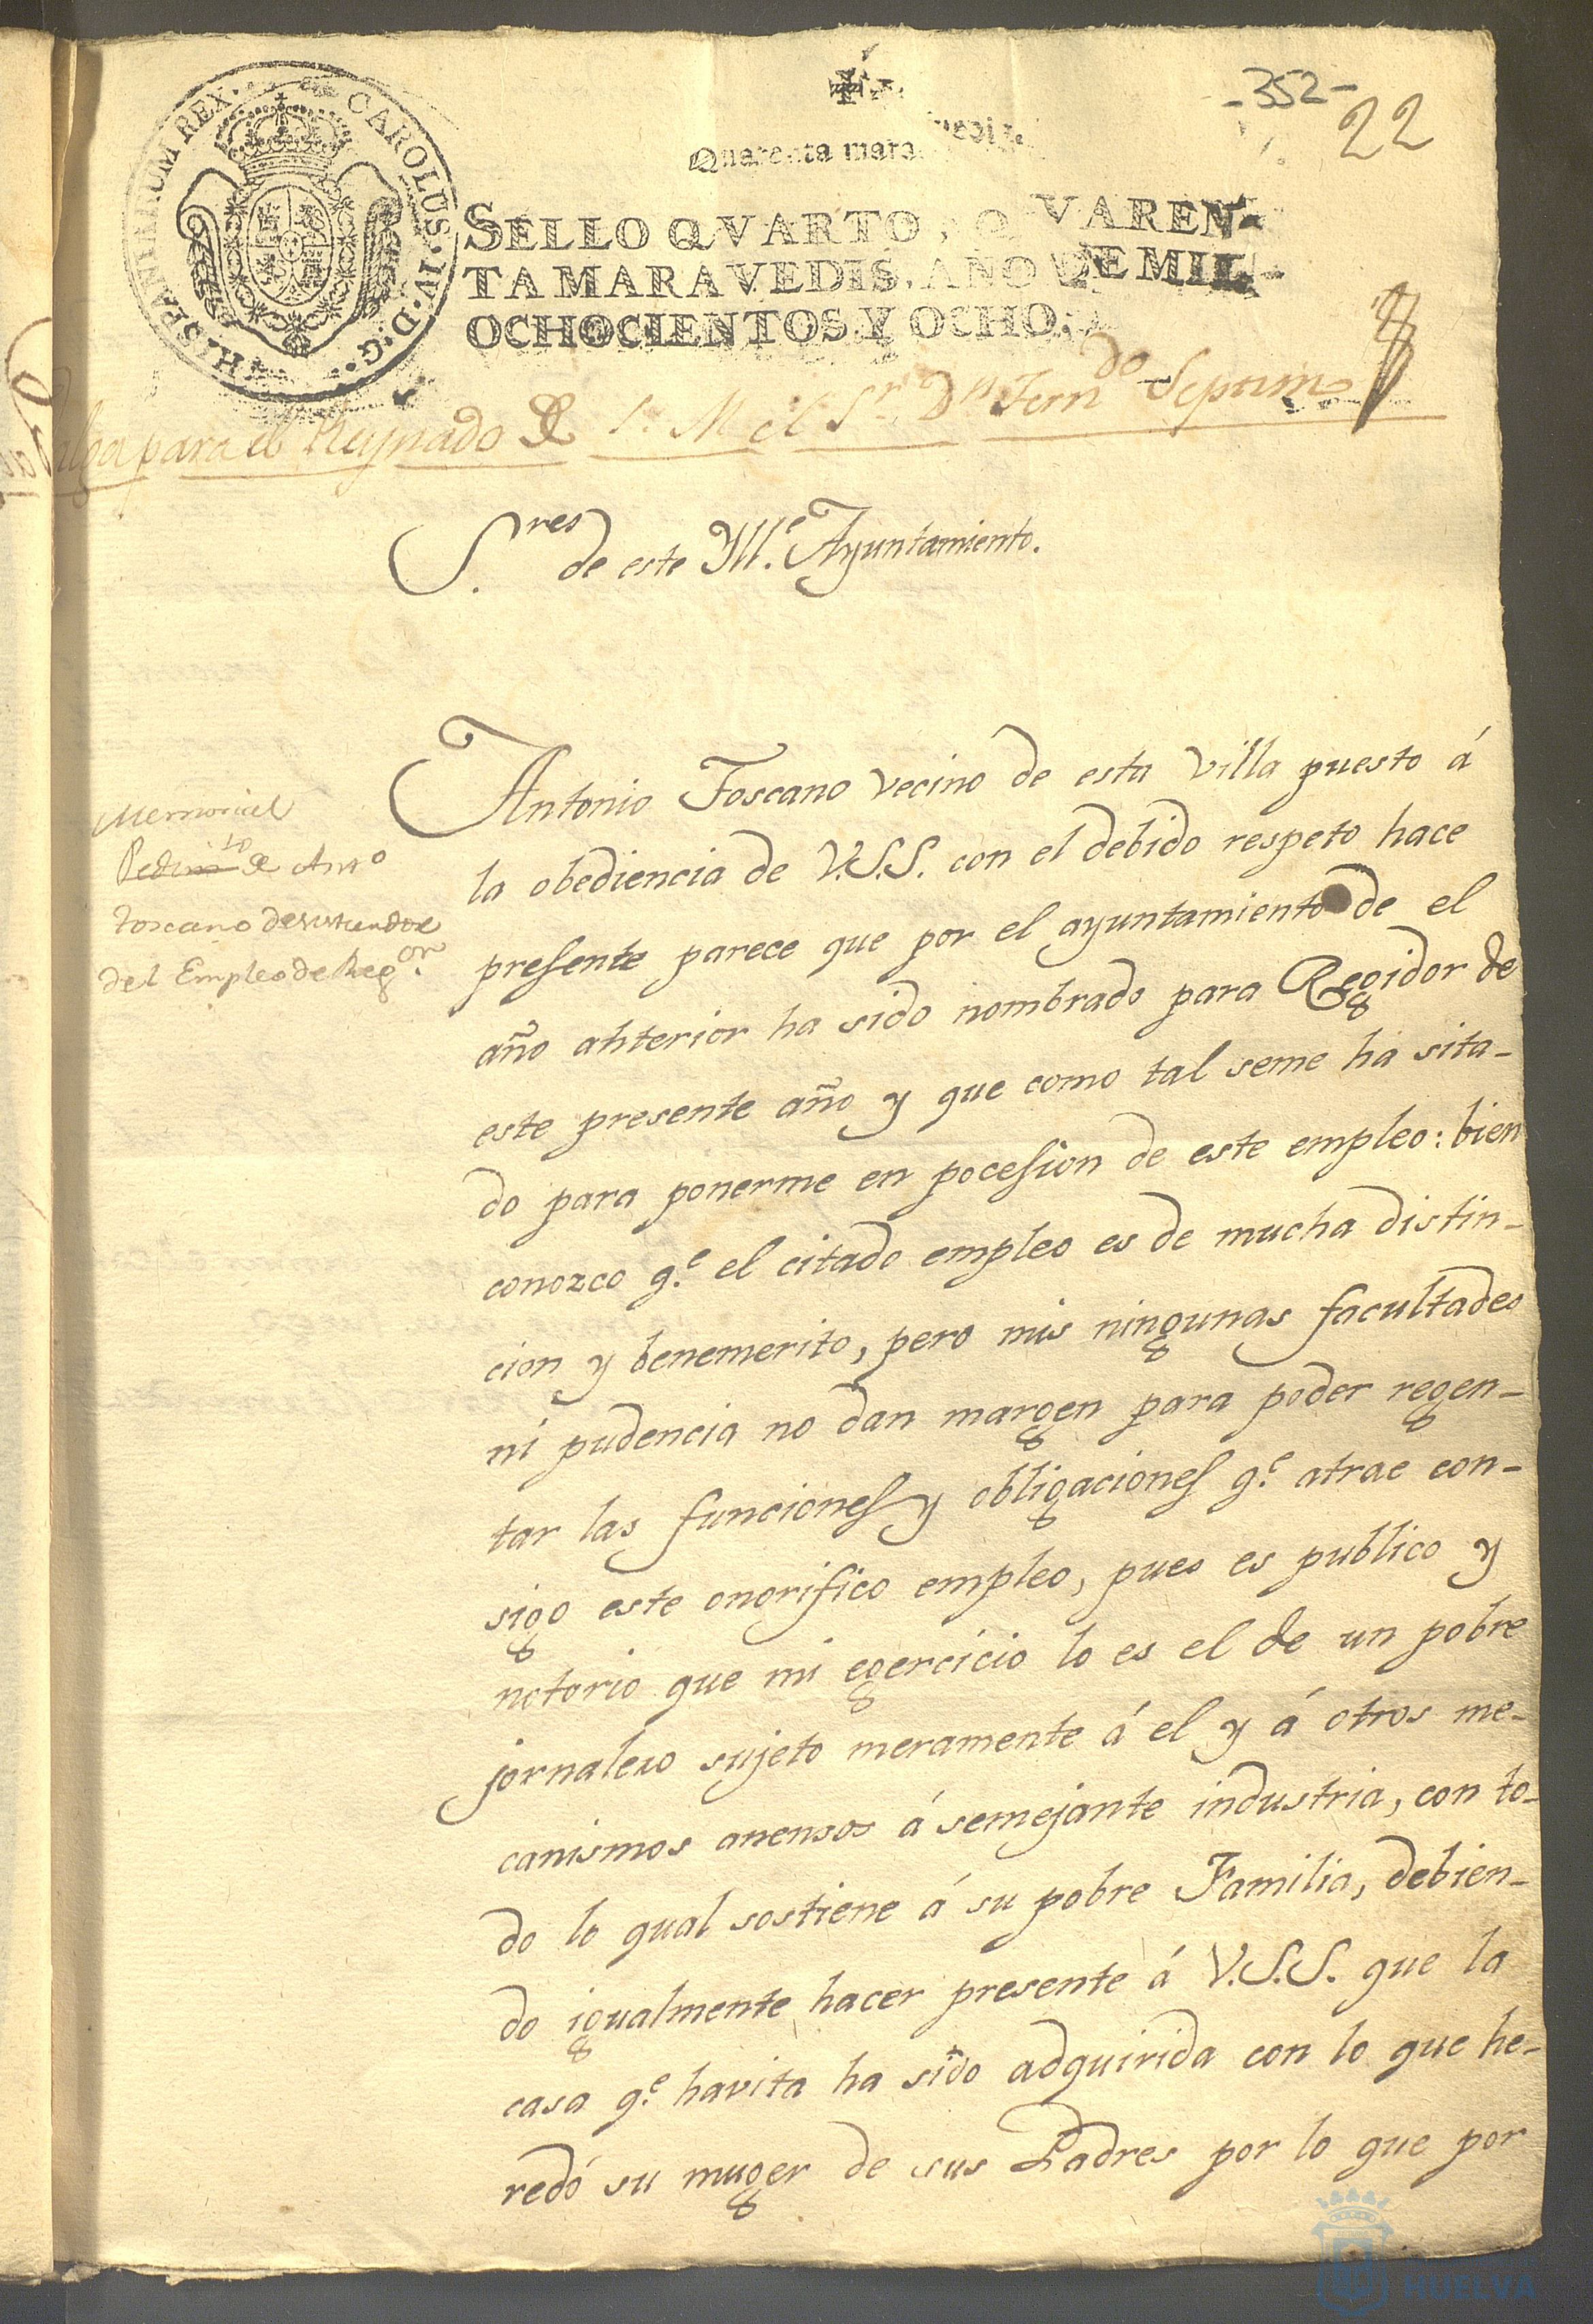 -352-
22
HISPANIARUM REX.
CAROLUS. IV. D. G.
Quarenta mara
SELLO QVARTO, QVAREN-
TA MARAVEDIS, AÑO DE MIL
OCHOCIENTOS Y OCHO.
alga para el Reynado de S. M. el Sr. Dn Ferndo Septimo
S.res de este Yll.e Ayuntamiento.
Memorial
Pedimto de Anto
Toscano desistiendose
del Empleo de Regor.
Antonio Toscano vecino de esta villa puesto á
la obediencia de V.S.S. con el debido respeto hace
presente parece que por el ayuntamiento de el
año ahterior ha sido nombrado para Regidor de
este presente año y que como tal seme ha sita-
do para ponerme en pocesion de este empleo: bien
conozco q.e el citado empleo es de mucha distin-
cion y benemerito, pero mis ningunas facultades
ni pudencia no dan margen para poder regen-
tar las funciones y obligaciones q.e atrae con-
sigo este onorifico empleo, pues es publico y
notorio que mi egercicio lo es el de un pobre
jornalero sujeto meramente á el y á otros me-
canismos anensos á semejante industria, con to-
do lo qual sostiene á su pobre Familia, debien-
do igualmente hacer presente á V.S.S. que la
casa q.e havita ha sido adquirida con lo que he-
redó su muger de sus Padres por lo que por
HUELVA